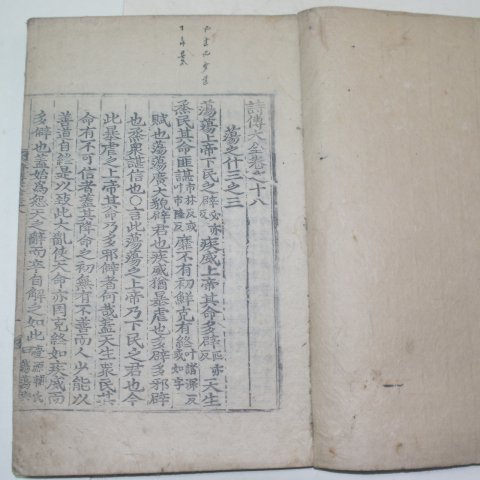 詩傳大全卷之十八
蕩之什三之三
蕩蕩上帝下民之辟必亦反疾威上帝其命多辟匹亦反天生
烝民其命匪諶市林反或叶市隆反靡不有初鮮克有終叶諸深反或如字
賦也蕩蕩廣大貌辟君也疾威猶暴虐也多辟多邪辟
也烝衆諶信也○言此蕩蕩之上帝乃下民之君也今
此暴虐之上帝其命乃多邪僻者何哉蓋天生衆民其
命有不可信者蓋其降命之初無有不善而人少能以
善道自終是以致此大亂使天命亦罔克終如疾威而
多僻也蓋始爲怨天之辭而卒自解之如此